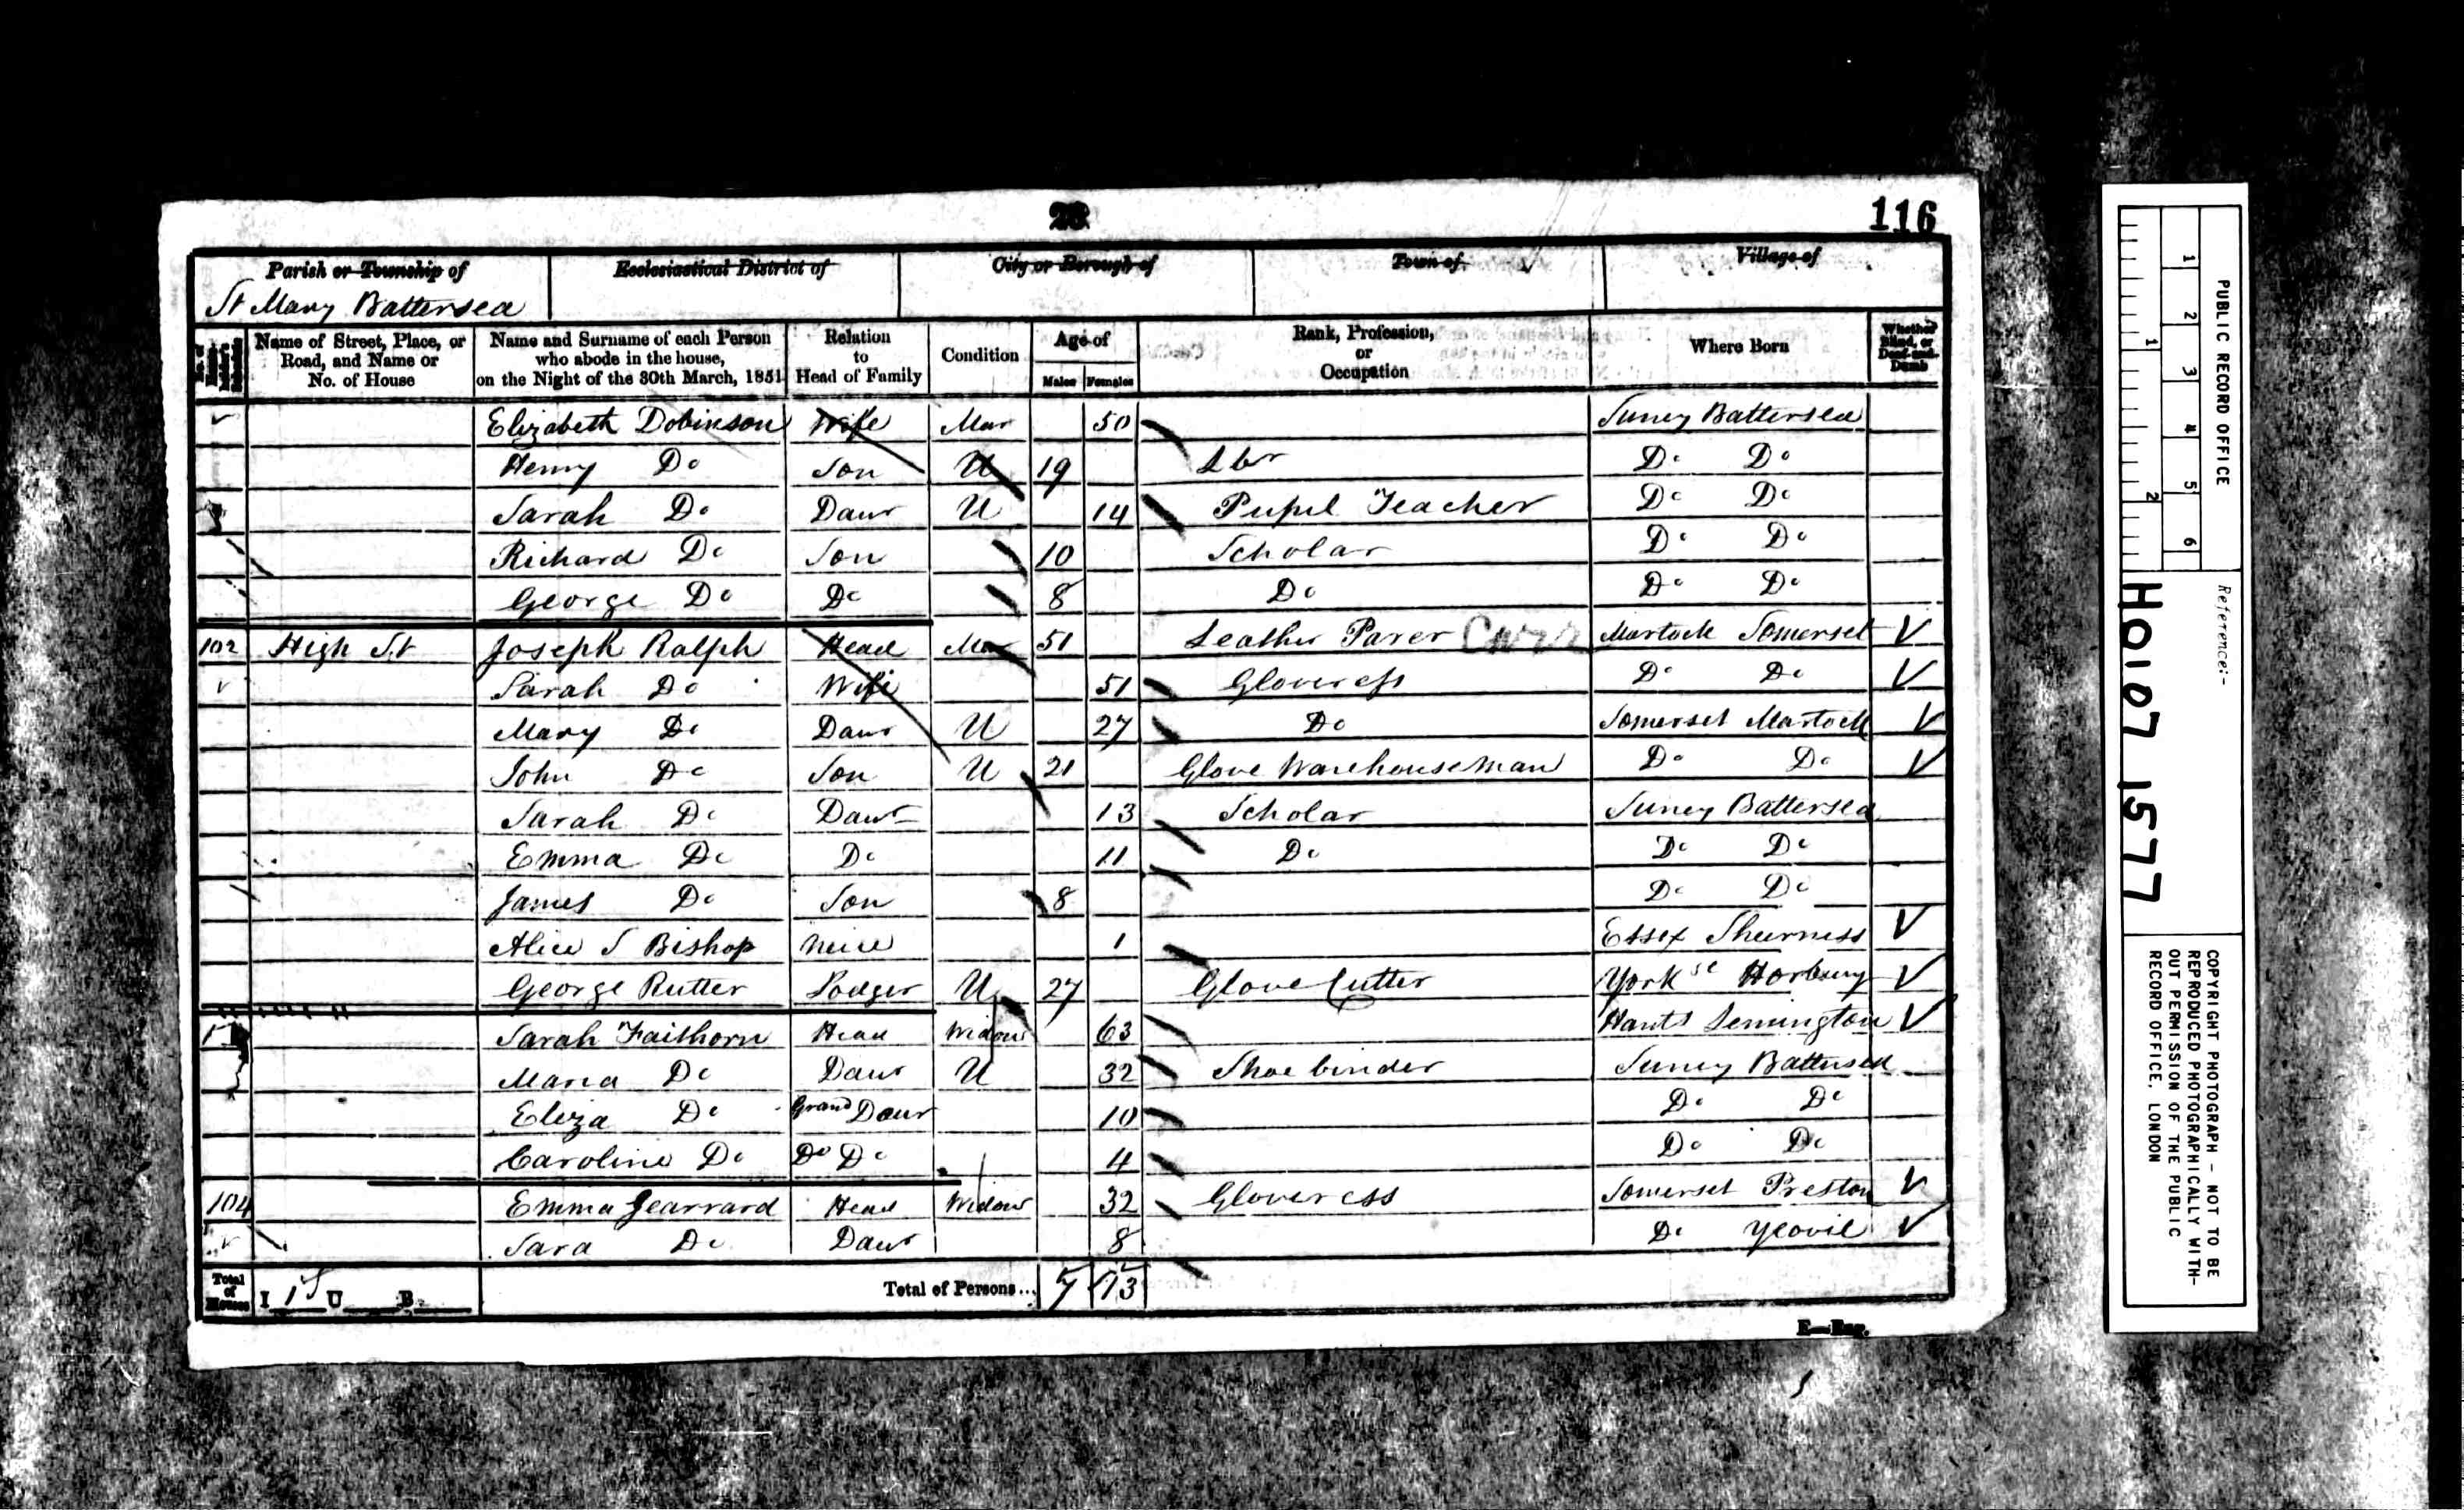 116
Parish or Township of
Ecclesiastical District of
City or Borough of
Town of
Village of
St Mary Battersea
Name of Street, Place, or Road, and Name or No. of House
Name and Surname of each Person who abode in the house, on the Night of the 30th March, 1851
Relation to Head of Family
Condition
Age of
Males Females
Rank, Profession, or Occupation
Where Born
Whether Blind, or Deaf-and-Dumb
Elizabeth Dobinson Wife Mar 50 Surrey Battersea
Henry Do Son U 19 Lbr Do Do
Sarah Do Daur U 14 Pupil Teacher Do Do
Richard Do Son 10 Scholar Do Do
George Do Do 8 Do Do Do
102 High St Joseph Ralph Head Mar 51 Leather Parer Martock Somerset
Sarah Do Wife 51 Gloveress Do Do
Mary Do Daur U 27 Do Somerset Martock
John Do Son U 21 Glove Warehouseman Do Do
Sarah Do Daur 13 Scholar Surrey Battersea
Emma Do Do 11 Do Do Do
James Do Son 8 Do Do
Alice S Bishop Neice 1 Essex Sheerness
George Rutter Lodger U 27 Glove Cutter Yorkse Horbury
Sarah Faithorn Head Widow 63 Hants Lemington
Maria Do Daur U 32 Shoebinder Surrey Battersea
Eliza Do Grand Daur 10 Do Do
Caroline Do Do Do 4 Do Do
104 Emma Gearrard Head Widow 32 Gloveress Somerset Preston
Sara Do Daur 8 Do Yeovil
Total of Houses I U B
Total of Persons... 7 13
E—Eng.
PUBLIC RECORD OFFICE
1 2 3 4 5 6
1 2
Reference:-
HO107 1577
COPYRIGHT PHOTOGRAPH – NOT TO BE
REPRODUCED PHOTOGRAPHICALLY WITH-
OUT PERMISSION OF THE PUBLIC
RECORD OFFICE, LONDON